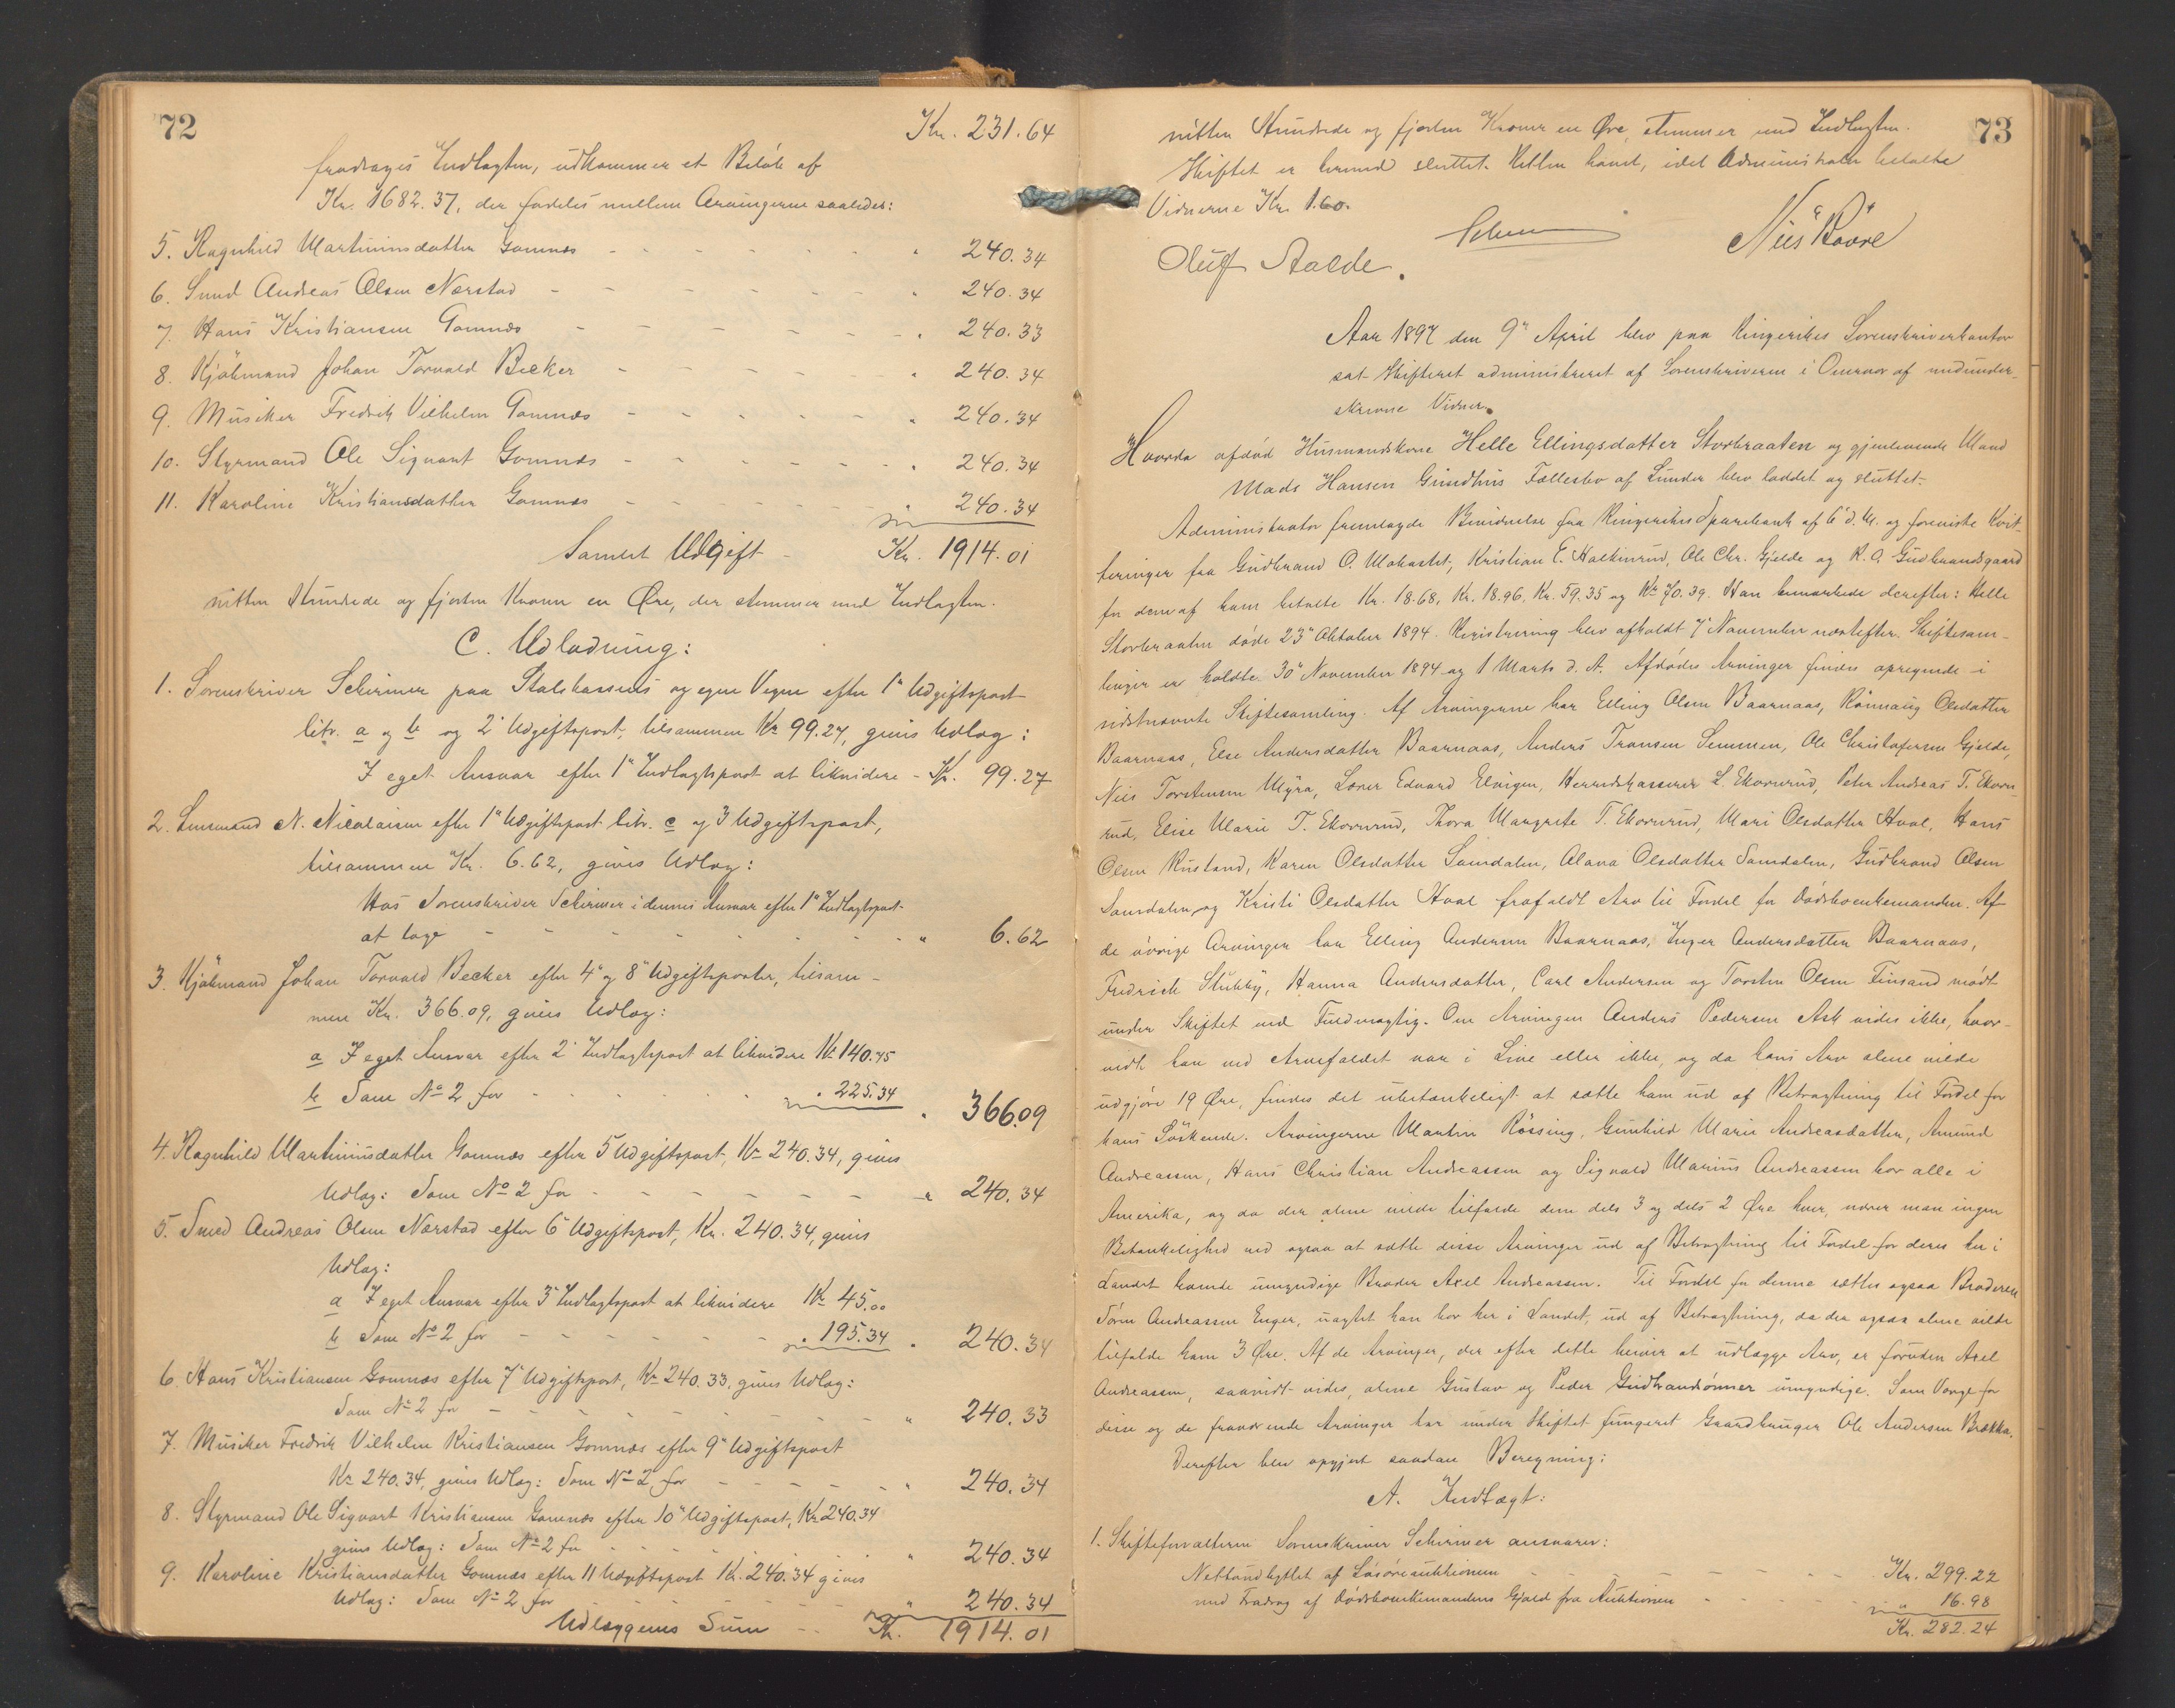 72
Kr. 231.64
fradrages Indtægten, udkommer et Beløb af
Kr. 1682.37, der fordeles mellem Arvingerne saaledes:
5. Ragnhild Martinusdatter Gomnæs - - - - - " 240.34
6. Smed Andreas Olsen Nærstad - - - - - " 240.34
7. Hans Kristiansen Gomnæs - - - - - " 240.33
8. Kjøbmand Johan Torvald Becker - - - - - " 240.34
9. Musiker Fredrik Vilhelm Gomnæs - - - - - " 240.34
10. Styrmand Ole Sigvart Gomnæs - - - - - " 240.34
11. Karoline Kristiansdatter Gomnæs - - - - - " 240.34
Samlet Udgift - Kr. 1914.01
nitten Hundrede og fjorten Kroner en Øre, der stemmer med Indtægten.
C. Udlodning:
1. Sorenskriver Schirmer paa Statskassens og egne Vegne efter 1ste Udgiftspost
litr. a og b og 2 Udgiftspost, tilsammen Kr 99.27, gives Udlæg:
I eget Ansvar efter 1ste Indtægtspost at likvidere - Kr. 99.27
2. Lensmand N. Nicolaisen efter 1ste Udgiftspost litr. c og 3 Udgiftspost,
tilsammen Kr. 6.62, gives Udlæg:
Hos Sorenskriver Schirmer i dennes Ansvar efter 1ste Indtægtspost
at tage - - - - - " 6.62
3. Kjøbmand Johan Torvald Becker efter 4de og 8de Udgiftsposter, tilsam-
men Kr. 366.09, gives Udlæg:
a I eget Ansvar efter 2 Indtægtspost at likvidere Kr 140.75
b Som No 2 for - - - - " 225.34 " 366.09
4. Ragnhild Martinusdatter Gomnæs efter 5 Udgiftspost, Kr 240.34, gives
Udlæg: Som No 2 for - - - - - " 240.34
5. Smed Andreas Olsen Nærstad efter 6 Udgiftspost, Kr. 240.34, gives
Udlæg:
a I eget Ansvar efter 3 Indtægtspost at likvidere Kr 45.00
b Som No 2 for - - - - - " 195.34 " 240.34
6. Hans Kristiansen Gomnæs efter 7 Udgiftspost, Kr 240.33, gives Udlæg:
Som No 2 for - - - - - " 240.33
7. Musiker Fredrik Vilhelm Kristiansen Gomnæs efter 9 Udgiftspost
Kr 240.34, gives Udlæg: Som No 2 for - - - - " 240.34
8. Styrmand Ole Sigvart Kristiansen Gomnæs efter 10 Udgiftspost, Kr 240.34
gives Udlæg: Som No 2 for - - - - " 240.34
9. Karoline Kristiansdatter Gomnæs efter 11 Udgiftspost Kr. 240.34 gives
Udlæg: Som No 2 for - - - " 240.34
Udlæggenes Sum - - Kr. 1914.01
73
nitten Hundrede og fjorten Kroner en Øre, stemmer med Indtægten.
Skiftet er hermed sluttet. Retten hævet, idet Administrator betalte
Vidnerne Kr. 1.60.
Schirmer
Nils Baare
Oluf Aalde.
Aar 1897 den 9de April blev paa Ringerikes Sorenskriverkontor
sat Skifteret administreret af Sorenskriveren i Overvær af medunder-
skrevne Vidner.
Hvorda afdød Husmandskone Helle Ellingsdatter Storbraaten og gjenlevende Mand
Mads Hansen Grindhus Fællesbo af Lunder blev loddet og sluttet.
Administrator fremlagde Bevidnelse fra Ringerikes Sparebank af 6 d. M. og foreviste Kvit-
teringer fra Gudbrand O. Mokastet, Kristian E. Halkinrud, Ole Chr. Gjelde og K. O. Gudbrandsgaard
for dem af ham betalte Kr. 18.68, Kr. 18.96, Kr. 59.35 og Kr 70.39. Han bemærkede derefter: Helle
Storbraaten døde 23de Oktober 1894. Registrering blev afholdt 7 November næstefter. Skiftesam-
linger er holdte 30te November 1894 og 1 Marts d. A. Afdødes Arvinger findes opregnede i
sidstnævnte Skiftesamling. Af Arvingerne har Elling Olsen Baarnaas, Rønnaug Olsdatter
Baarnaas, Else Andersdatter Baarnaas, Anders Transen Semmen, Ole Christofersen Gjelde,
Nils Torstensen Myra, Lærer Edvard Elvigen, Herredskasserer L. Ekornrud, Peter Andreas T. Ekorn-
rud, Elise Marie T. Ekornrud, Thora Margrete T. Ekornrud, Mari Olsdatter Hval, Hans
Olsen Rustand, Karen Olsdatter Samdalen, Olava Olsdatter Samdalen, Gudbrand Olsen
Samdalen og Kristi Olsdatter Hval frafaldt Arv til Fordel for Dødsboenkemanden. Af
de øvrige Arvinger har Elling Andersen Baarnaas, Inger Andersdatter Baarnaas,
Fredrich Stubby, Hanna Andersdatter, Carl Andersen og Torsten Olsen Finsand mødt
under Skiftet ved Fuldmægtig. Om Arvingen Anders Pedersen Ask vides ikke, hvor-
vidt han ved Arvefaldet var i Live eller ikke, og da hans Arv alene vilde
udgjøre 19 Øre, findes det ubetænkeligt at sætte ham ud af Betragtning til Fordel for
hans Søskende. Arvingerne Martin Røssing, Gunhild Marie Andreasdatter, Amund
Andreassen, Hans Christian Andreassen og Sigvald Marius Andreassen bor alle i
Amerika, og da der alene vilde tilfalde dem dels 3 og dels 2 Øre hver, nærer man ingen
Betænkelighed ved ogsaa at sætte disse Arvinger ud af Betragtning til Fordel for deres her i
Landet boende umyndige Broder Axel Andreassen. Til Fordel for denne sættes ogsaa Broderen
Søren Andreassen Enger, uagtet han bor her i Landet, ud af Betragtning, da der ogsaa alene vilde
tilfalde ham 3 Øre. Af de Arvinger, der efter dette bliver at udlægge Arv, er foruden Axel
Andreassen, saavidt vides, alene Gustav og Peder Gudbrandsønner umyndige. Som Værge for
disse og de fraværende Arvinger har under Skiftet fungeret Gaardbruger Ole Andersen Brække.
Derefter blev opgjort saadan Beregning:
A. Indtægt:
1. Skifteforvalteren Sorenskriver Schirmer ansvarer:
Nettoudbyttet af Løsøreauktionen - - - - - Kr. 299.22
med Fradrag af Dødsboenkemandens Gjæld fra Auktionen - - - - " 16.98
Kr. 282.24